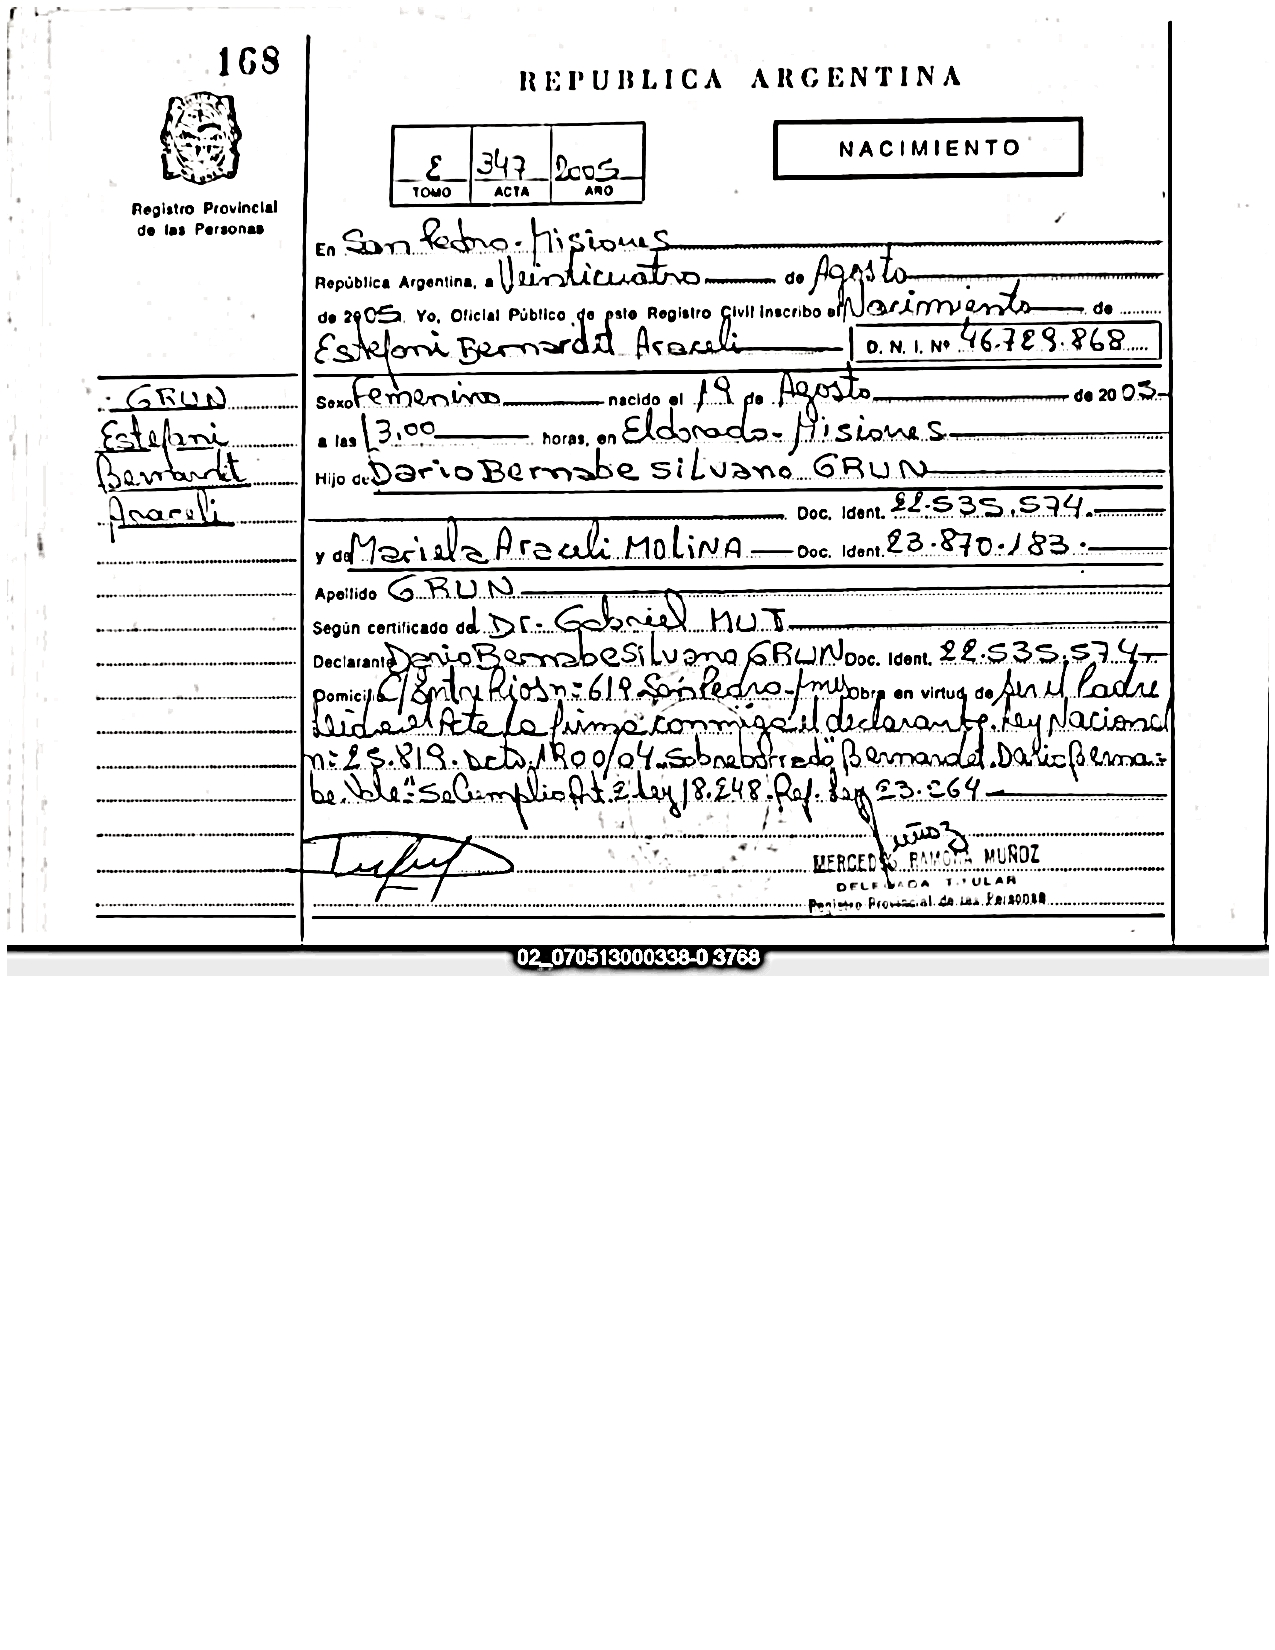 168
REPUBLICA ARGENTINA
Registro Provincial
de las Personas
E 347 2005
TOMO ACTA AÑO
NACIMIENTO
En San Pedro - Misiones
República Argentina, a Veinticuatro de Agosto
de 2005 Yo, Oficial Público de este Registro Civil inscribo el Nacimiento de
Estefani Bernardit Araceli D. N. I. Nº 46.789.868
GRUN
Estefani
Bernardit
Araceli
Sexo Femenino nacido el 19 de Agosto de 2005
a las 13,00 horas, en Eldorado - Misiones
Hijo de Dario Bernabe Silvano GRUN
Doc. Ident. 22.535.574.
y de Mariela Araceli MOLINA Doc. Ident. 23.870.183.
Apellido GRUN
Según certificado del Dr. Gabriel MUT
Declarante Dario Bernabe Silvano GRUN Doc. Ident. 22.535.574
Domicilio C/ Entre Rios n= 619 San Pedro Obra en virtud de ser el Padre
Leida el Acta la firma conmigo el declarante. Ley Nacional
n= 25.819. Dcto. 1900/04. Sobreborrado "Bernardet. Dario Berna=
be. Vale". Se Cumplio Art. 2 Ley 18.248. Ref. Ley 23.264
Muñoz
MERCEDES RAMONA MUÑOZ
DELEGADA TITULAR
Registro Provincial de las Personas
02_070513000338-0 3768